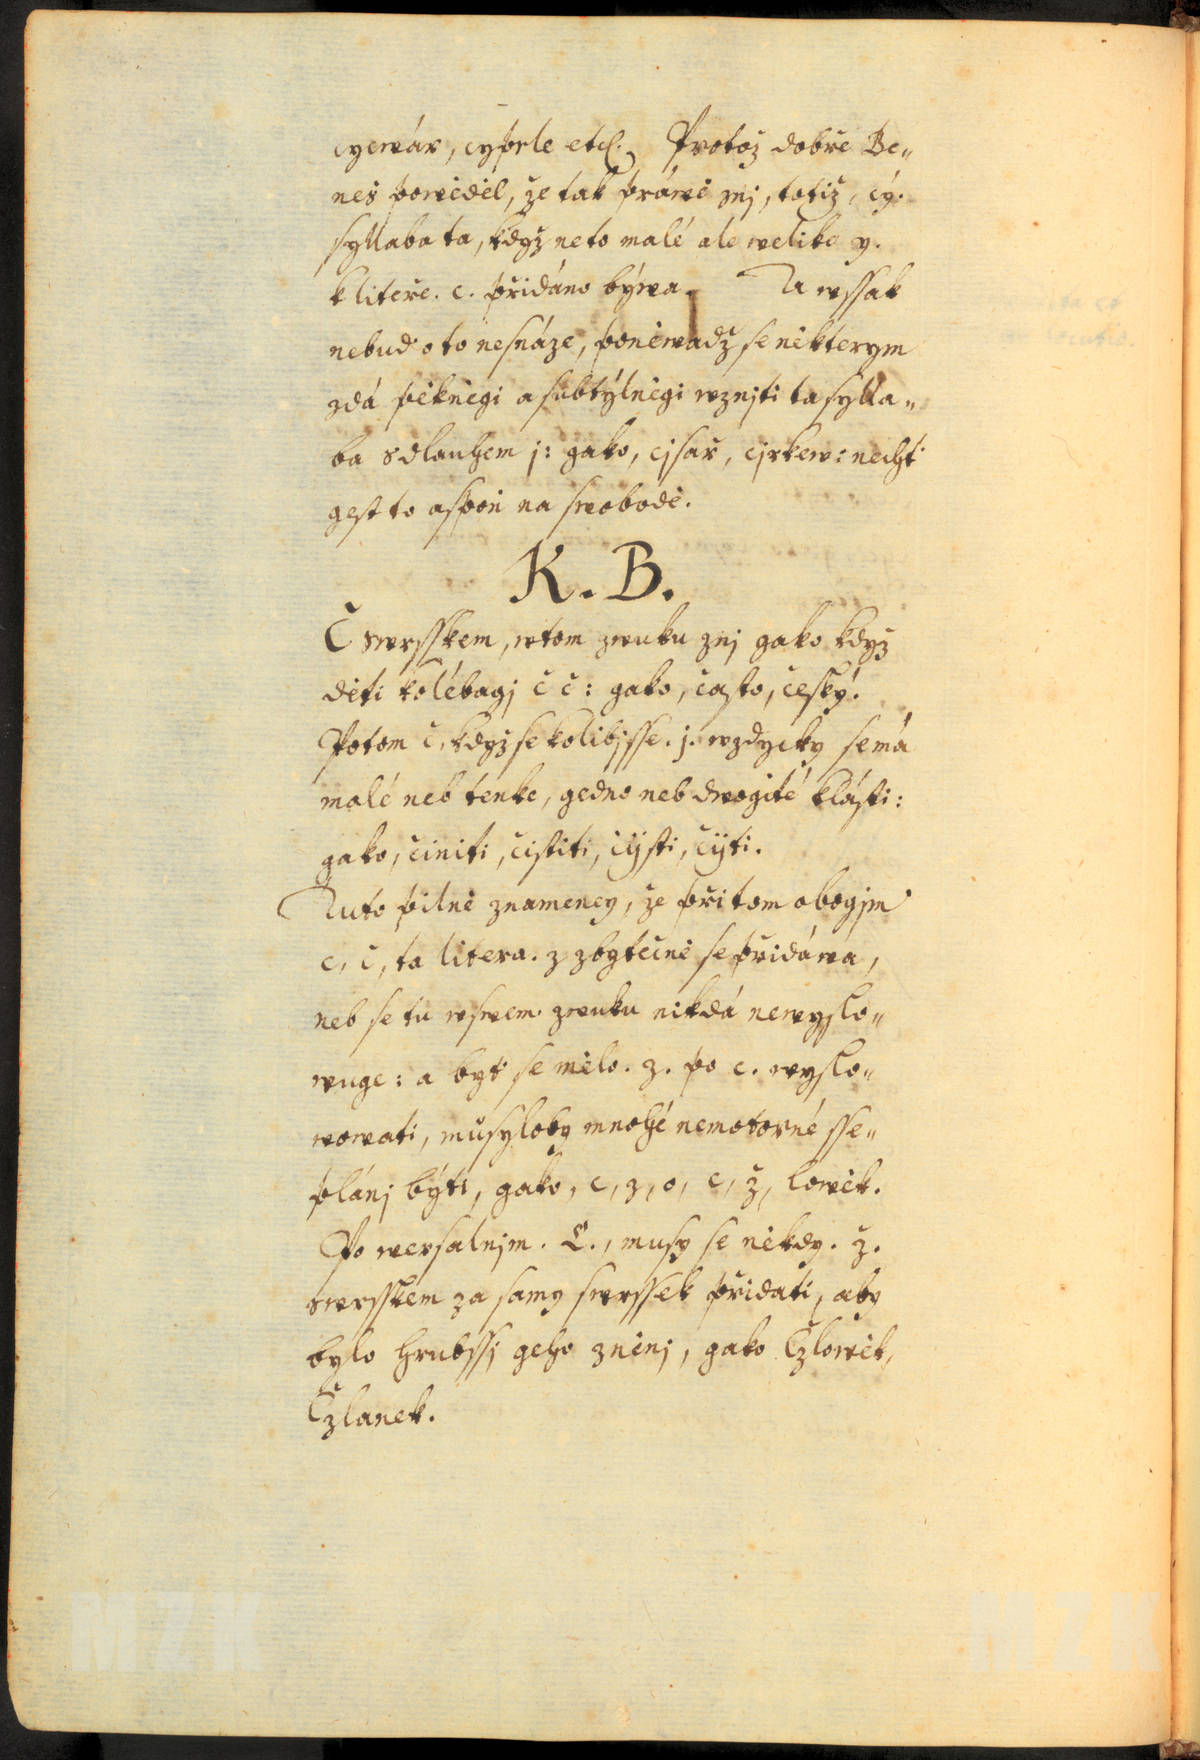 cycwár, cyprle etc. Protož dobře Be„
neš powěděl, že tak práwě znj, totiž, cý.
syllaba ta, když neto malé ale welike y.
k liteře. c. přidáno býwa. A wssak
nebuď o to nesnáze, poněwadž se některym
zdá pěkněgi a subtýlněgi wznjti ta sylla„
ba s dlauhem j: gako, cjsař, cjrkew: nechť
gest to aspoň na swobodě.
K. B.
Č swrsskem, w tom zwuku znj gako když
děti kolébagj č č: gako, často, český.
Potom č, když se kolibj sse. j. wzdycky se má
malé neb tenke, gedno neb dwogité klásti:
gako, činiti, čistiti, čijsti, čijti.
Tuto pilně znameney, že při tom obogjm
c, č, ta litera. z zbytečně se přidáwa,
neb se tu w swem zwuku nikdá newyslo„
wuge: a byť se mělo. z. po c. wyslo„
wowati, musyloby mnohé nemotorné sse„
plánj býti, gako, c, z, o, c, ž, lowěk.
Po wersalnjm. C., musy se někdy. ž.
swrsskem za samy swrssek přidati, aby
bylo hrubssj geho zněnj, gako Čžlowěk,
Čžlanek.
MZK
MZK